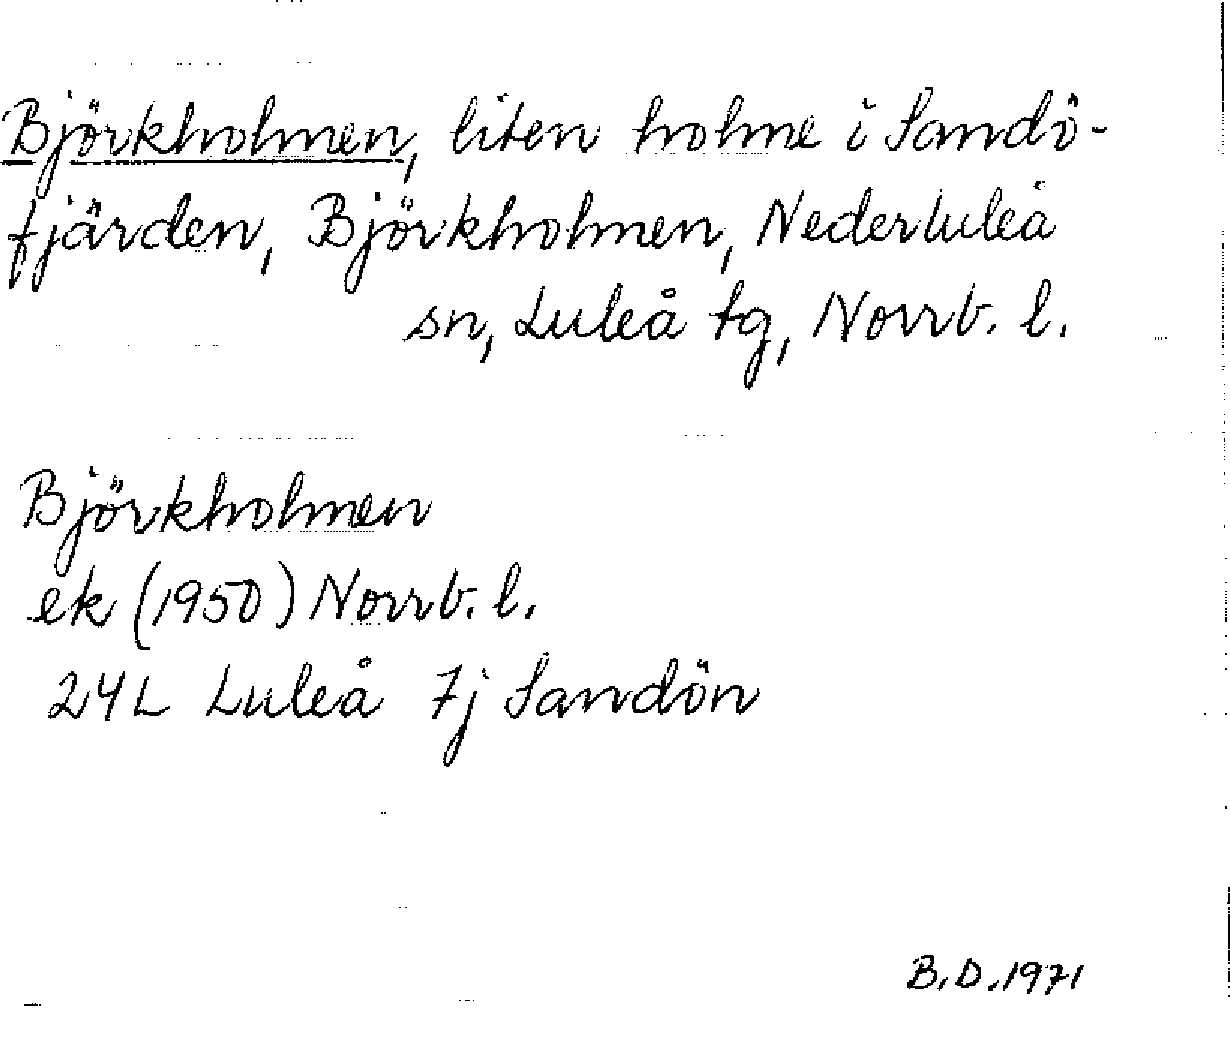 Björkholmen, liten holme i Sandö-
fjärden, Björkholmen, Nederluleå
sn, Luleå tg, Norrb. l.
Björkholmen
ek (1950) Norrb. l.
24L Luleå 7j Sandön
B.D. 1971